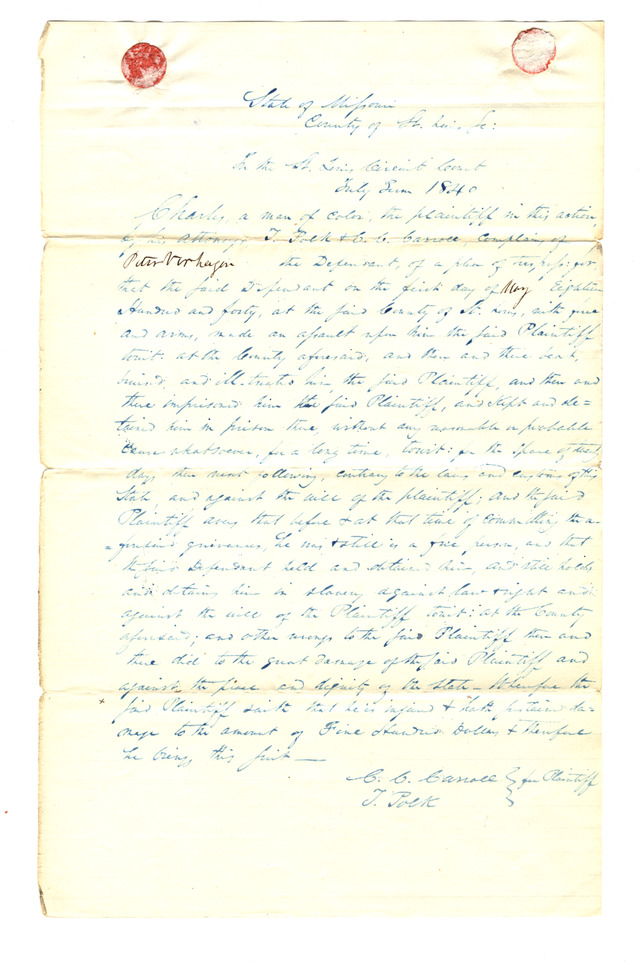 State of Missouri
County of St. Louis, Sc:
In the St. Louis Circuit Court
July Term 1840
Charles, a man of color, the plaintiff in this action,
by his attorneys, T. Polk & C. C. Carroll, complains of
Peter Verhagen the Defendant, of a plea of trespass: for
that the said Defendant on the first day of May Eighteen
Hundred and forty, at the said County of St. Louis, with force
and arms, made an assault upon him the said Plaintiff
towit: at the County aforesaid, and then and there beat,
bruised, and ill-treated him the said Plaintiff, and then and
there imprisoned him the said Plaintiff, and kept and de=
tained him in prison there, without any reasonable or probable
cause whatsoever, for a long time, towit: for the space of
days then next following, contrary to the laws and customs of this
State, and against the will of the plaintiff; and the said
Plaintiff avers that before & at that time of committing the a-
=foresaid grievances, he was & still is a free person, and that
the said Defendant held and detained him, and still holds
and detains him in slavery against law & right and
against the will of the Plaintiff towit: at the County
aforesaid; and other wrongs to the said Plaintiff then and
there did to the great damage of the said Plaintiff and
against the peace and dignity of the State – Wherefore the
x said Plaintiff saith that he is injured & hath sustained da-
mage to the amount of Five Hundred Dollars & therefore
he brings this suit —
C. C. Carroll } for Plaintiff
T. Polk